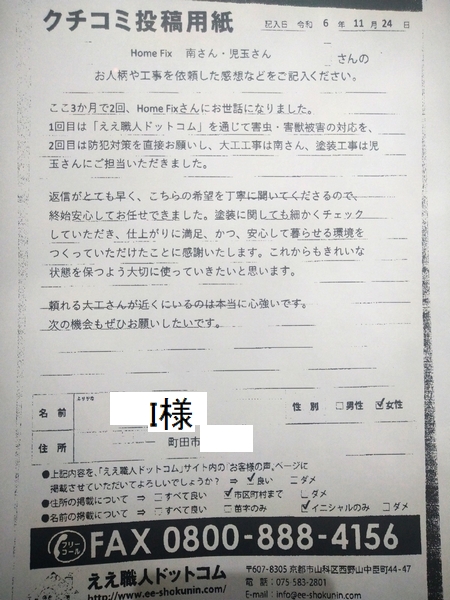 クチコミ投稿用紙
記入日 令和 6 年 11 月 24 日
Home Fix 南さん・児玉さん さんの
お人柄や工事を依頼した感想などをご記入ください。
ここ3か月で2回、Home Fixさんにお世話になりました。
1回目は「ええ職人ドットコム」を通じて害虫・害獣被害の対応を、
2回目は防犯対策を直接お願いし、大工工事は南さん、塗装工事は児
玉さんにご担当いただきました。
返信がとても早く、こちらの希望を丁寧に聞いてくださるので、
終始安心してお任せできました。塗装に関しても細かくチェック
していただき、仕上がりに満足、かつ、安心して暮らせる環境を
つくっていただけたことに感謝いたします。これからもきれいな
状態を保つよう大切に使っていきたいと思います。
頼れる大工さんが近くにいるのは本当に心強いです。
次の機会もぜひお願いしたいです。
ふりがな
名前 I様 性別 □男性 ☑女性
住所 町田市
●上記内容を、「ええ職人ドットコム」サイト内の「お客様の声」ページに
掲載させていただいてよろしいでしょうか? ⇒ ☑良い □ダメ
●住所の掲載について ⇒ □すべて良い ☑市区町村まで □ダメ
●名前の掲載について ⇒ □すべて良い □苗字のみ ☑イニシャルのみ □ダメ
フリーコール FAX 0800-888-4156
ええ職人ドットコム
http://www.ee-shokunin.com/
〒607-8305 京都市山科区西野山中臣町44-47
電話:075-583-2801
E-mail:info@ee-shokunin.com